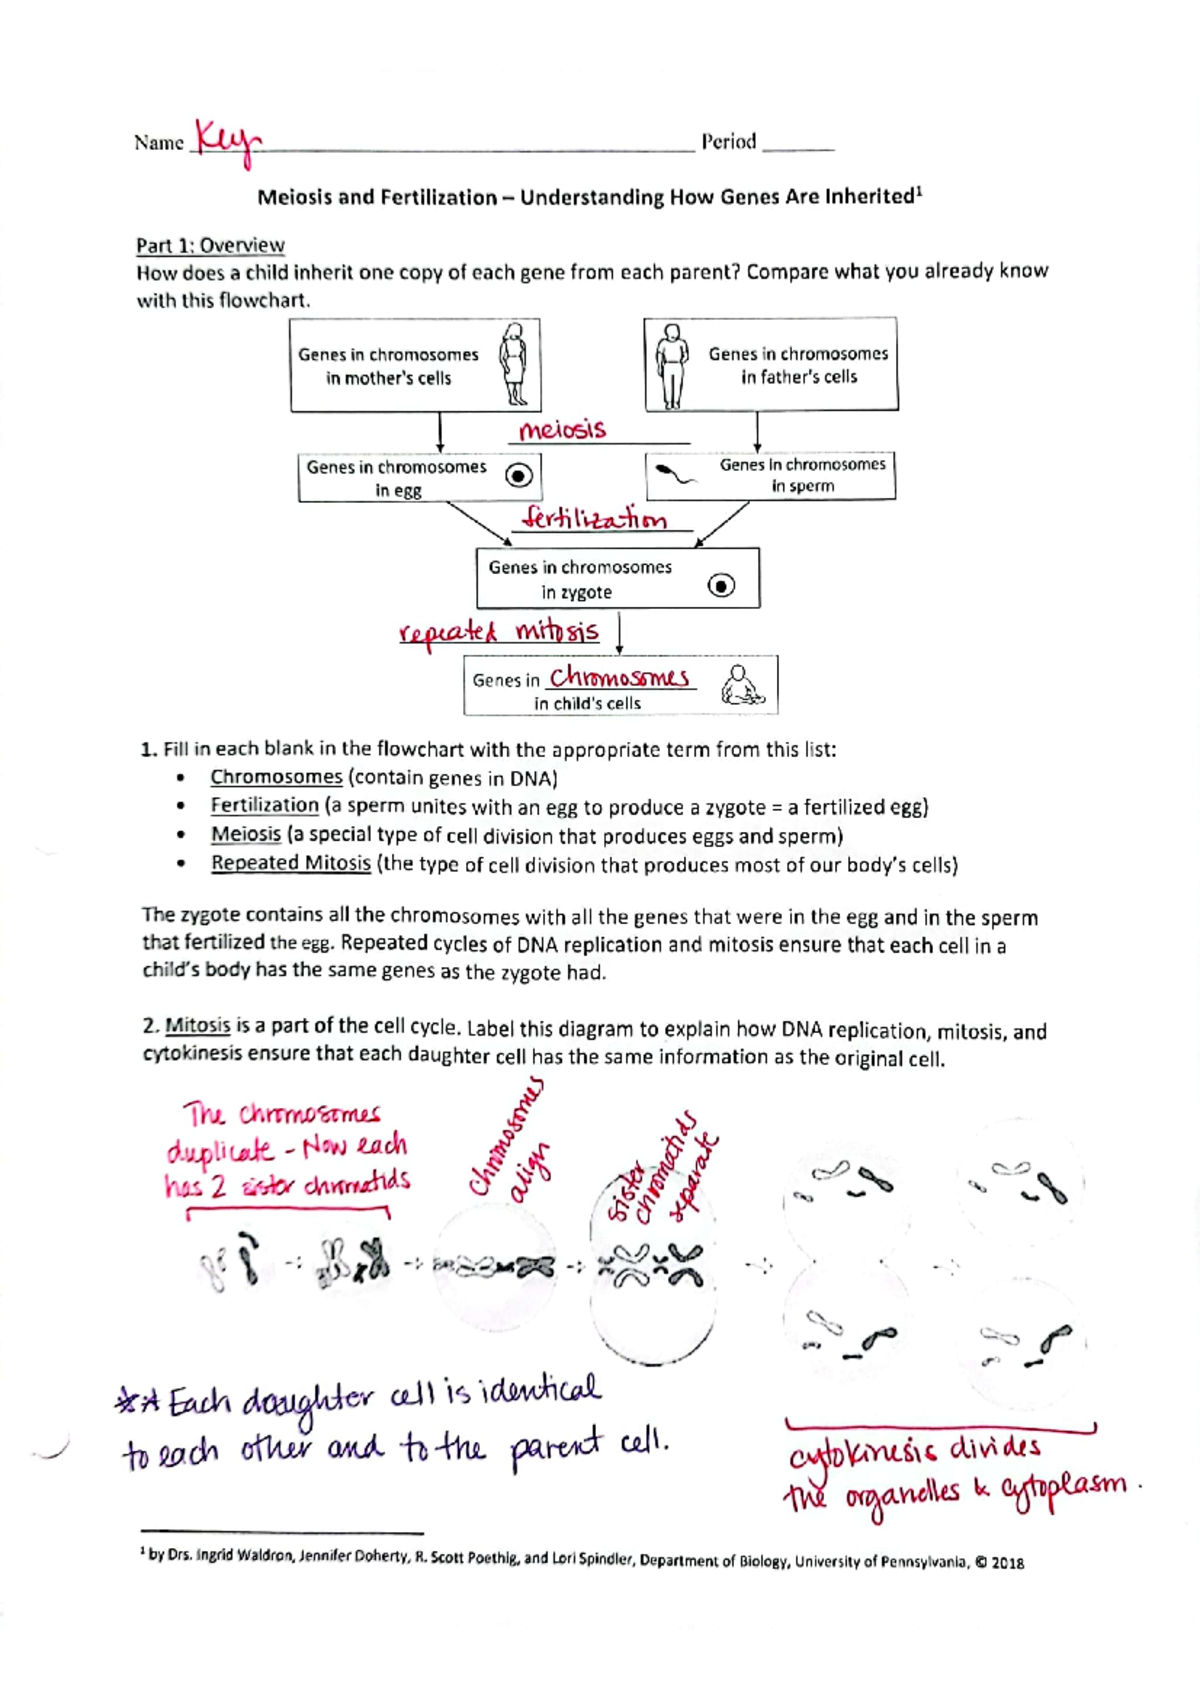 Name Key Period
Meiosis and Fertilization – Understanding How Genes Are Inherited¹
Part 1: Overview
How does a child inherit one copy of each gene from each parent? Compare what you already know
with this flowchart.
Genes in chromosomes
in mother's cells
Genes in chromosomes
in father's cells
meiosis
Genes in chromosomes
in egg
Genes in chromosomes
in sperm
fertilization
Genes in chromosomes
in zygote
repeated mitosis
Genes in chromosomes
in child's cells
1. Fill in each blank in the flowchart with the appropriate term from this list:
• Chromosomes (contain genes in DNA)
• Fertilization (a sperm unites with an egg to produce a zygote = a fertilized egg)
• Meiosis (a special type of cell division that produces eggs and sperm)
• Repeated Mitosis (the type of cell division that produces most of our body's cells)
The zygote contains all the chromosomes with all the genes that were in the egg and in the sperm
that fertilized the egg. Repeated cycles of DNA replication and mitosis ensure that each cell in a
child's body has the same genes as the zygote had.
2. Mitosis is a part of the cell cycle. Label this diagram to explain how DNA replication, mitosis, and
cytokinesis ensure that each daughter cell has the same information as the original cell.
The chromosomes
duplicate - Now each
has 2 sister chromatids
chromosomes
align
sister
chromatids
separate
** Each daughter cell is identical
to each other and to the parent cell.
cytokinesis divides
the organelles & cytoplasm.
¹ by Drs. Ingrid Waldron, Jennifer Doherty, R. Scott Poethig, and Lori Spindler, Department of Biology, University of Pennsylvania, © 2018